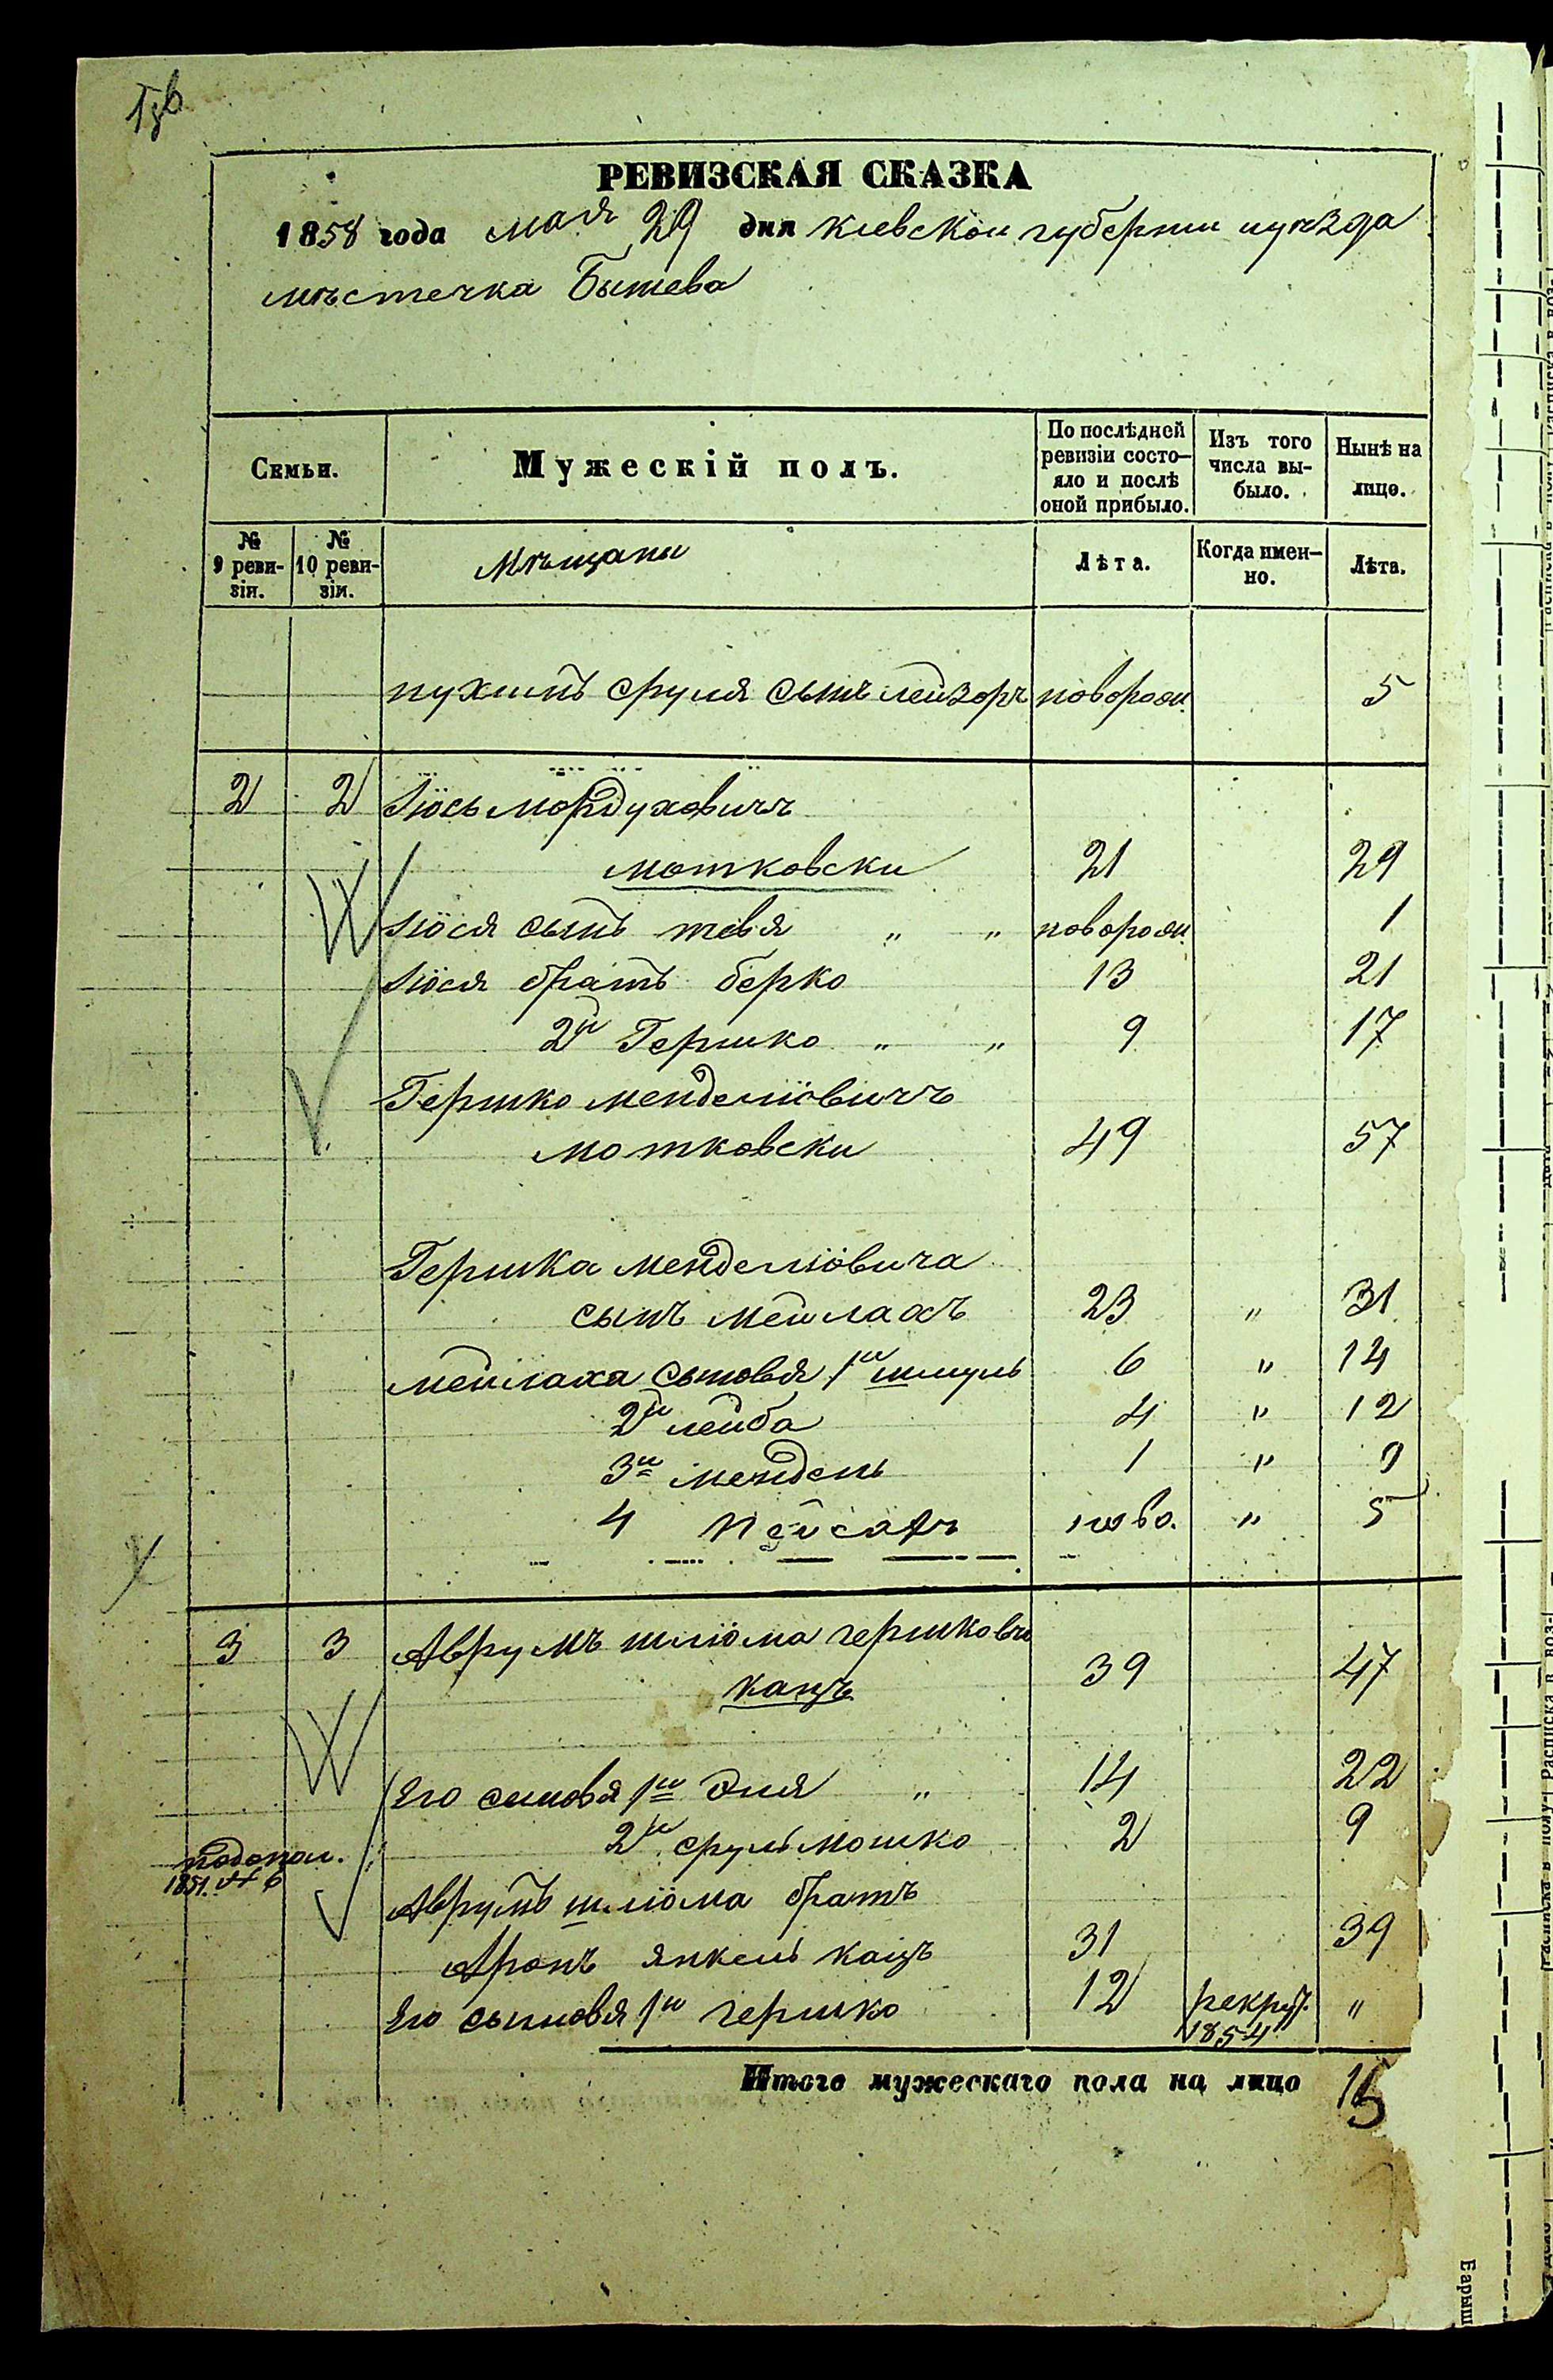 РЕВИЗСКАЯ СКАЗКА
1858 года мая 29 дня киевской губернии и уѣзда
мѣстечка Бышева
Семьи.
Мужескій полъ.
По послѣдней ревизіи состояло и послѣ оной прибыло.
Изъ того числа выбыло.
Нынѣ на лицо.
№ 9 ревизіи.
№ 10 ревизіи.
Мѣщаны
Лѣта.
Когда именно.
Лѣта.
нухимъ сруля сынъ лейзоръ новорож. 5
2 2 Иось мордуховичъ
мотковски 21 29
Иося сынъ тевя " " новорож. 1
Иося братъ берко 13 21
2й Гершко " " 9 17
Гершко менделіовичъ
мотковски 49 57
Гершка менделіовича
сынъ мейлахъ 23 " 31
мейлаха сыновья 1й шмуль 6 " 14
2й лейба 4 " 12
3й мендель 1 " 9
4 пейсахъ ново. " 5
3 3 Аврумъ шліома гершкович
кацъ 39 47
Его сыновя 1й Эля " 14 22
2й сруль мошко 2 9
1851. № 6
Аврумъ шліома братъ
Аронъ янкель кацъ 31 39
Его сыновя 1й гершко 12 рекрут. 1854 "
Итого мужескаго пола на лицо 15
Барыш